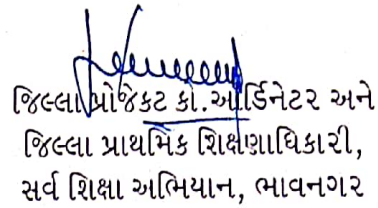 જિલ્લા પ્રોજેક્ટ કો.ઓર્ડિનેટર અને
જિલ્લા પ્રાથમિક શિક્ષણાધિકારી,
સર્વ શિક્ષા અભિયાન, ભાવનગર